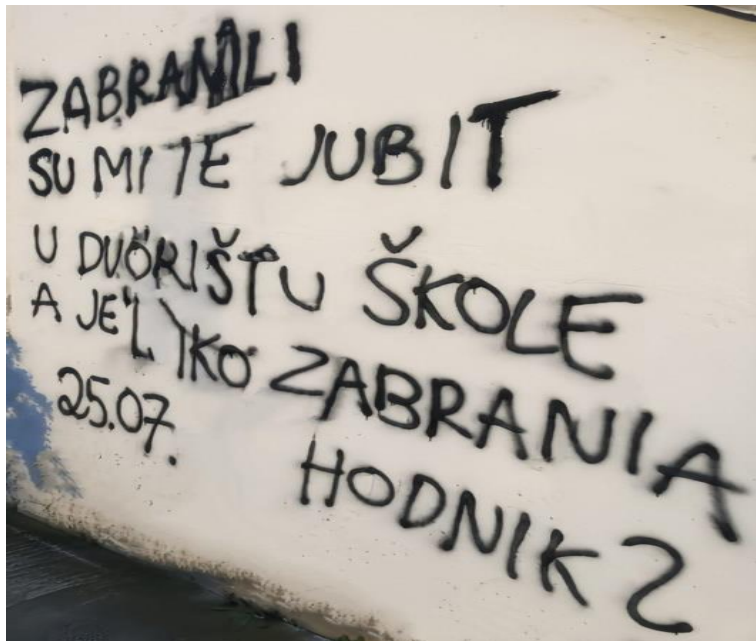 ZABRANILI
SU MI TE JUBIT
U DVORIŠTU ŠKOLE
A JE L' IKO ZABRANIA
25.07. HODNIK?